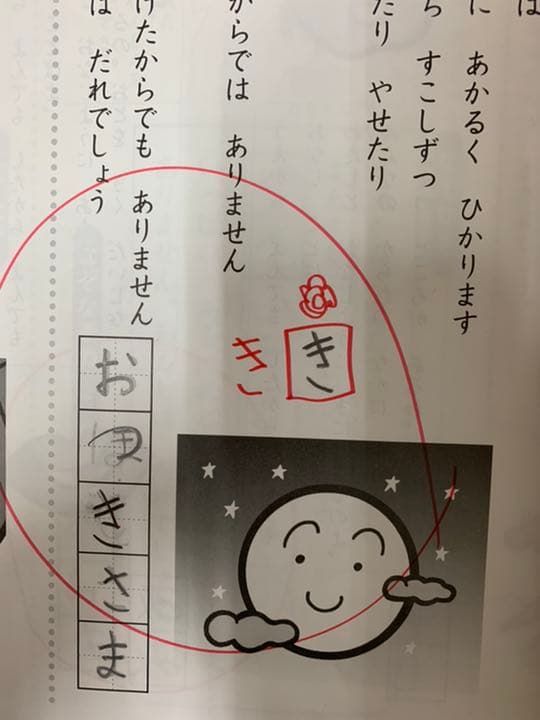 は
に あかるく ひかります
すこしずつ
たり やせたり
からでは ありません
たからでも ありません
は だれでしょう
き
き
おつきさま